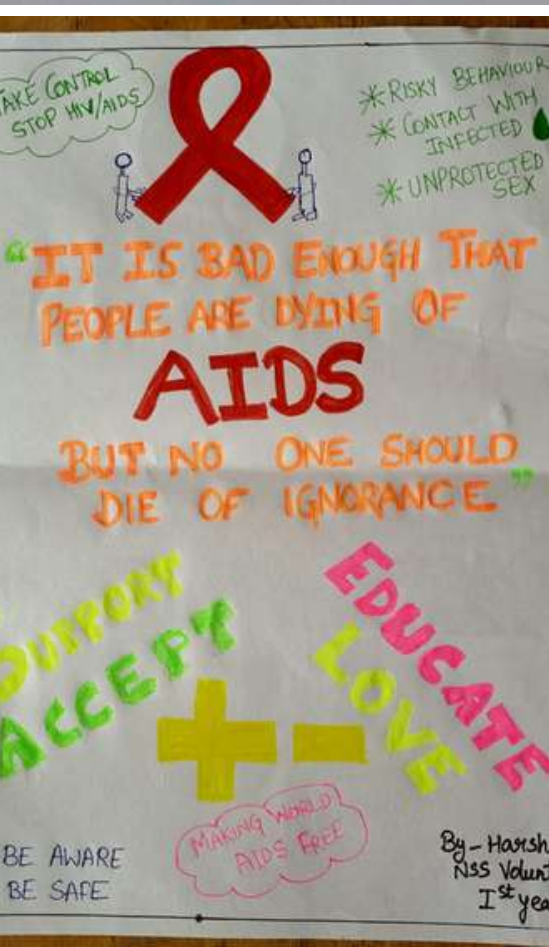 TAKE CONTROL
STOP HIV/AIDS
* RISKY BEHAVIOUR
* CONTACT WITH
INFECTED
* UNPROTECTED
SEX
"IT IS BAD ENOUGH THAT
PEOPLE ARE DYING OF
AIDS
BUT NO ONE SHOULD
DIE OF IGNORANCE"
SUPPORT
ACCEPT
EDUCATE
LOVE
+ -
MAKING WORLD
AIDS FREE
BE AWARE
BE SAFE
By - Harsh
NSS Volunt
Ist yea